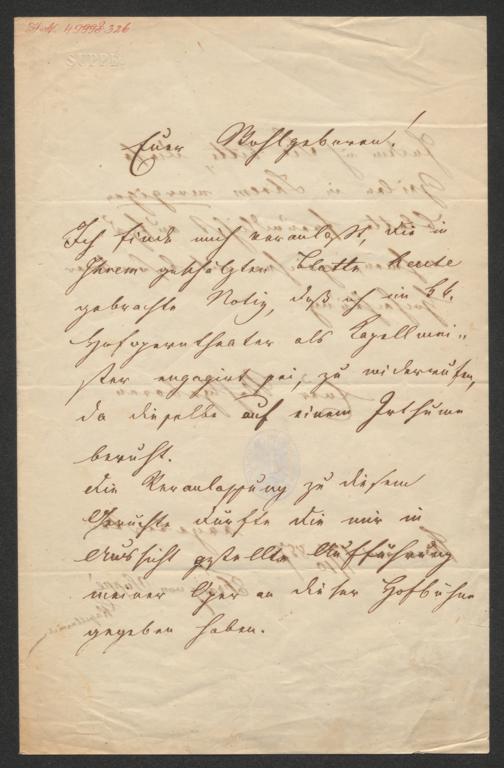 I. N. 49998. 326
SUPPÉ.
Euer Wohlgeboren!
Ich finde mich veranlaßt, die in
Ihrem geschätzten Blatte heute
gebrachte Notiz, daß ich im k. k.
Hofoperntheater als Kapellmei„
ster engagirt sei, zu widerrufen,
da dieselbe auf einem Irthume
beruht.
Die Veranlassung zu diesem
Gerüchte dürfte die mir in
Aussicht gestellte Aufführung
meiner Oper an dieser Hofbühne
gegeben haben.